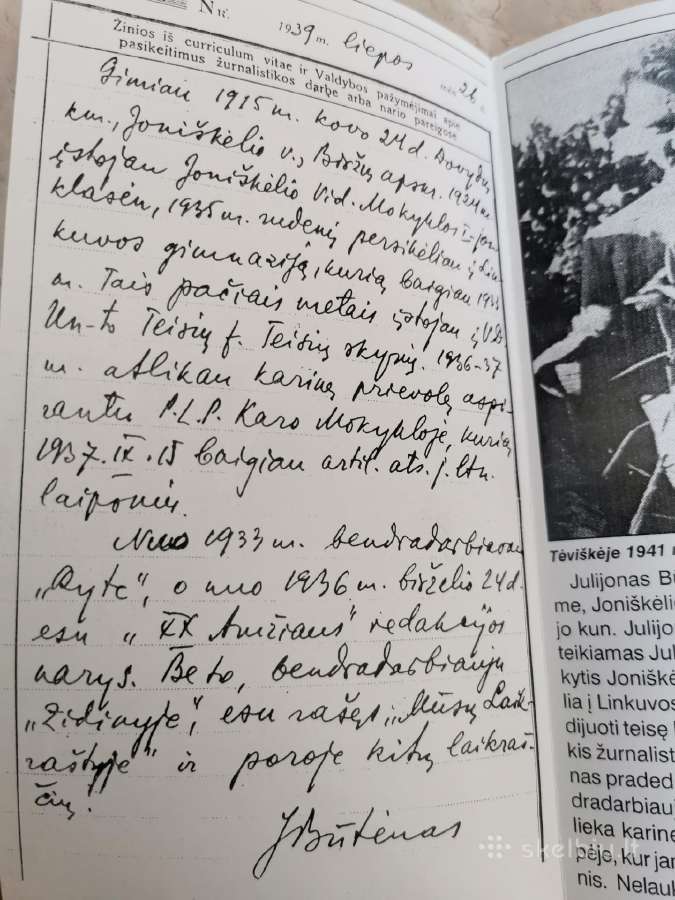 Nr.
1939 m. liepos mėn. 26 d.
Žinios iš curriculum vitae ir Valdybos pažymėjimai apie
pasikeitimus žurnalistikos darbe arba nario pareigose
Gimiau 1915 m. kovo 24 d. Dovydų
km., Joniškėlio v., Biržų apskr. 1924 m.
įstojau Joniškėlio Vid. Mokyklos I-jon
klasėn, 1935 m. rudenį persikėliau į Lin-
kuvos gimnaziją, kurią baigiau 1933
m. Tais pačiais metais įstojau į V.D.
Un-to Teisių f. Teisių skyrių. 1936-37
m. atlikau karinę prievolę aspi-
rantu P.L.P. Karo Mokykloje, kurią
1937.IX.15 baigiau artil. ats. j. ltn.
laipsniu.
Nuo 1933 m. bendradarbiavau
„Ryte“, o nuo 1936 m. birželio 24 d.
esu „XX Amžiaus“ redakcijos
narys. Be to, bendradarbiauju
„Židinyje“, esu rašęs „Mūsų Laik-
raštyje“ ir poroje kitų laikraš-
čių.
JBūtėnas
Tėviškėje 1941 m
Julijonas Bū
me, Joniškėlio
jo kun. Julijo
teikiamas Jul
kytis Joniškė
lia į Linkuvos
dijuoti teisę
kis žurnalist
nas praded
dradarbiau
lieka karine
pėje, kur jam
nis. Nelauk
skelbiu.lt